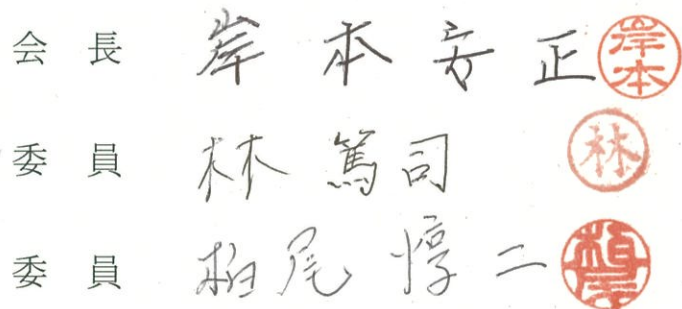 会長 岸本安正 岸本
委員 林篤司 林
委員 柏尾惇二 柏尾